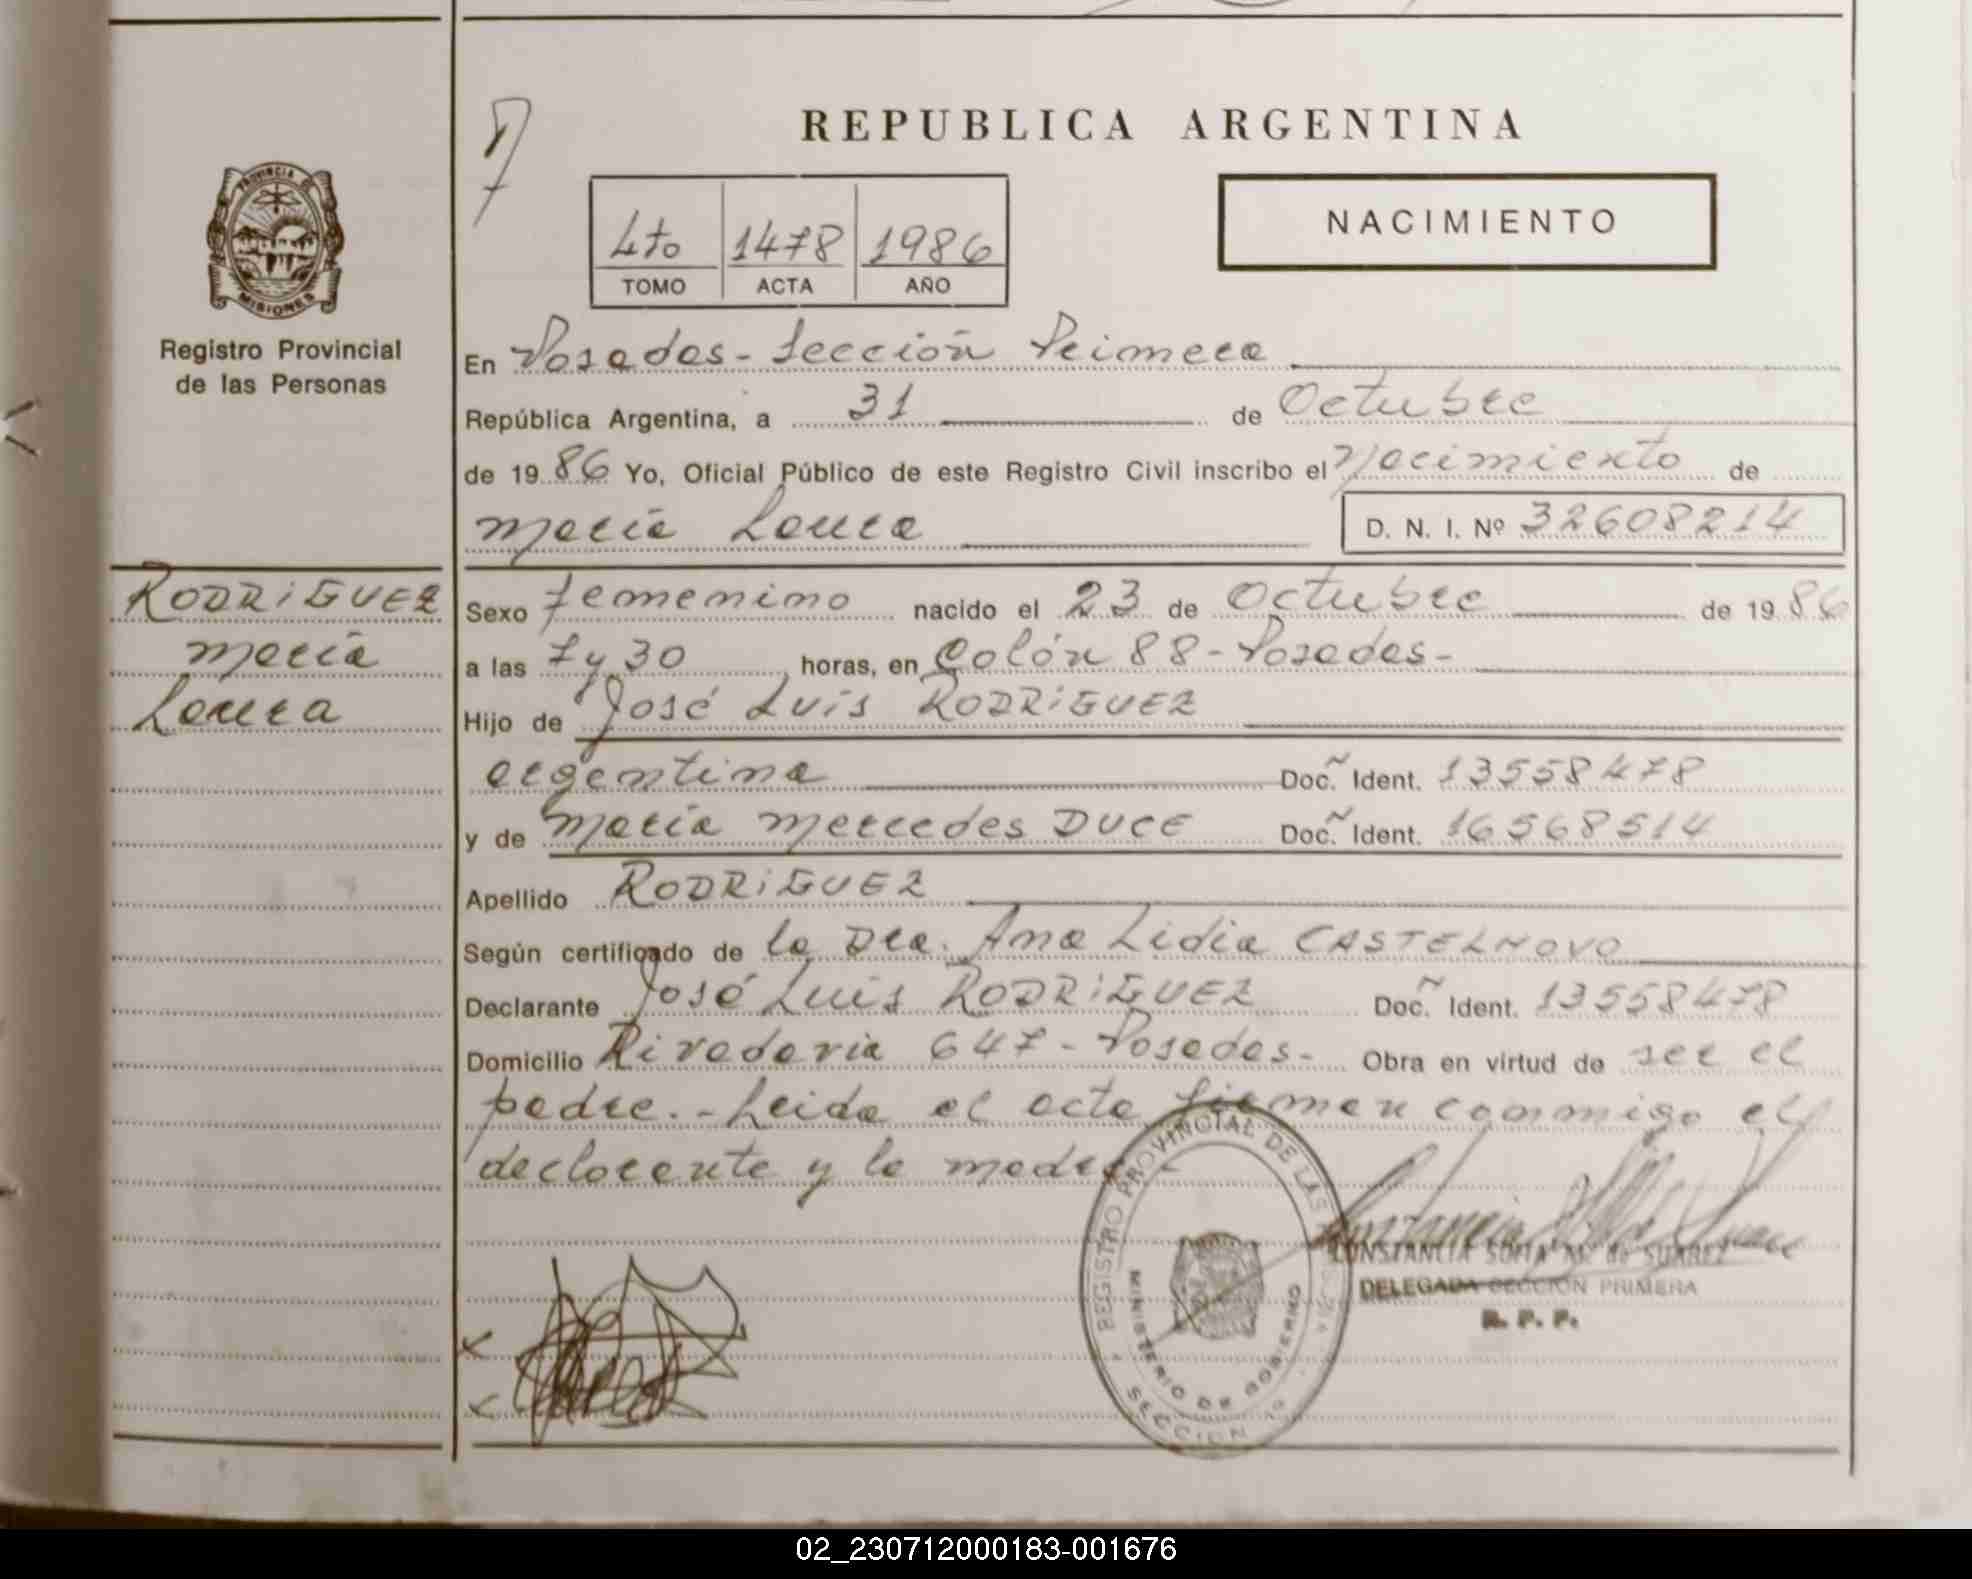 REPUBLICA ARGENTINA
PROVINCIA DE
MISIONES
Registro Provincial
de las Personas
4to 1478 1986
TOMO ACTA AÑO
NACIMIENTO
En Posadas - Sección Primera
República Argentina, a 31 de Octubre
de 1986 Yo, Oficial Público de este Registro Civil inscribo el Nacimiento de
María Laura D. N. I. Nº 32608214
RODRIGUEZ
María
Laura
Sexo femenino nacido el 23 de Octubre de 1986
a las 7 y 30 horas, en Colón 88 - Posadas -
Hijo de José Luis RODRIGUEZ
argentina Doc. Ident. 13558478
y de María Mercedes DUCE Doc. Ident. 16568514
Apellido RODRIGUEZ
Según certificado de la Dra. Ana Lidia CASTELNOVO
Declarante José Luis RODRIGUEZ Doc. Ident. 13558478
Domicilio Rivadavia 647 - Posadas - Obra en virtud de ser el
padre. - Leida el acta firman conmigo el
declarante y la madre -
REGISTRO PROVINCIAL DE LAS
MINISTERIO DE GOBIERNO
SECCION 1º
CONSTANCIA SOFIA M. de SUAREZ
DELEGADA SECCION PRIMERA
R. P. P.
02_230712000183-001676